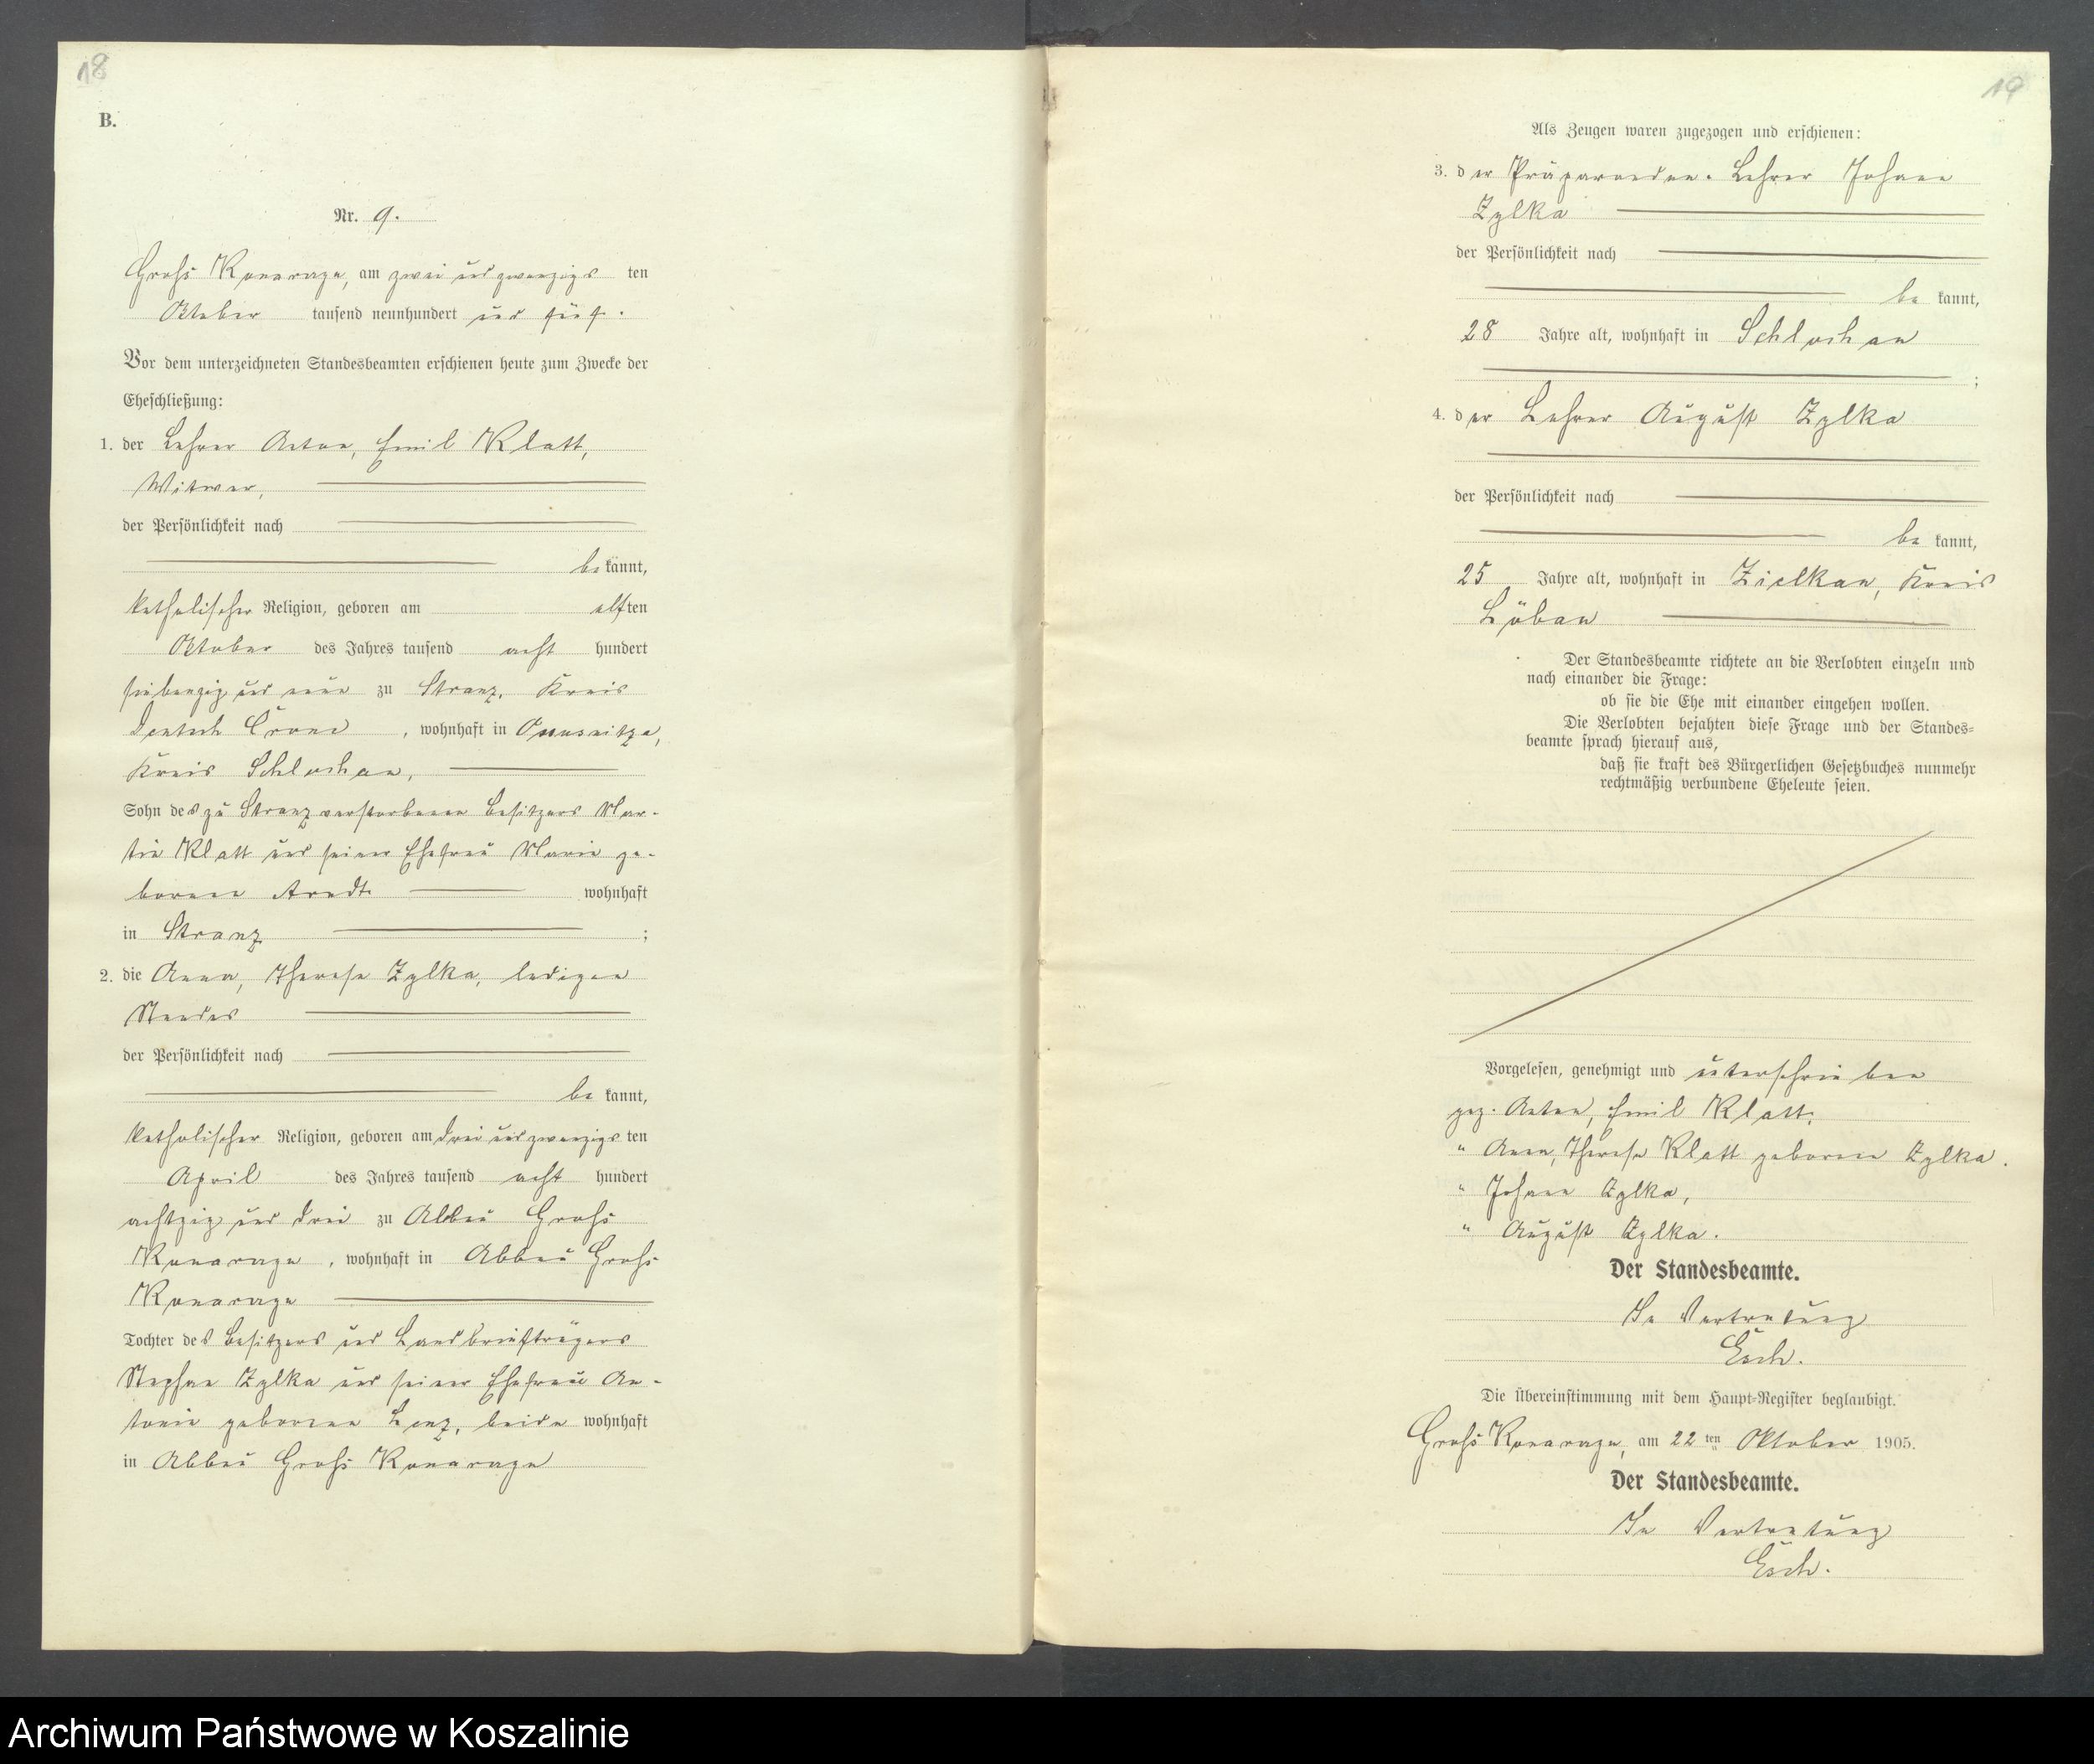 18
B.
Nr. 9.
Groß Konarzyn, am zwei und zwanzigs ten
Oktober tausend neunhundert und fünf.
Vor dem unterzeichneten Standesbeamten erschienen heute zum Zwecke der
Eheschließung:
1. der Lehrer Anton, Emil Klatt,
Witwer,
der Persönlichkeit nach
be kannt,
katholischer Religion, geboren am elften
Oktober des Jahres tausend acht hundert
siebenzig und neun zu Stranz, Kreis
Deutsch Crone, wohnhaft in
Kreis Schlochau,
Sohn des zu Stranz verstorbenen Besitzers Mar-
tin Klatt und seiner Ehefrau Marie ge-
borenen Arndt wohnhaft
in Stranz ;
2. die Anna, Therese Zylka, ledigen
Standes
der Persönlichkeit nach
be kannt,
katholischer Religion, geboren am drei und zwanzigs ten
April des Jahres tausend acht hundert
achtzig und drei zu Abbau Groß
Konarzyn, wohnhaft in Abbau Groß
Konarzyn
Tochter des Besitzers und Landbriefträgers
Stephan Zylka und seiner Ehefrau An-
tonie geborenen Lenz, beide wohnhaft
in Abbau Groß Konarzyn
19
Als Zeugen waren zugezogen und erschienen:
3. d er Präparanden-Lehrer Johann
Zylka
der Persönlichkeit nach
be kannt,
28 Jahre alt, wohnhaft in Schlochau
;
4. d er Lehrer August Zylka
der Persönlichkeit nach
be kannt,
25 Jahre alt, wohnhaft in Zielkau, Kreis
Löbau
Der Standesbeamte richtete an die Verlobten einzeln und
nach einander die Frage:
ob sie die Ehe mit einander eingehen wollen.
Die Verlobten bejahten diese Frage und der Standes-
beamte sprach hierauf aus,
daß sie kraft des Bürgerlichen Gesetzbuches nunmehr
rechtmäßig verbundene Eheleute seien.
Vorgelesen, genehmigt und unterschrieben
gez. Anton, Emil Klatt.
" Anna, Therese Klatt geborene Zylka.
" Johann Zylka,
" August Zylka.
Der Standesbeamte.
In Vertretung
Esch.
Die Übereinstimmung mit dem Haupt-Register beglaubigt.
Groß Konarzyn, am 22 ten Oktober 1905.
Der Standesbeamte.
In Vertretung
Esch.
Archiwum Państwowe w Koszalinie